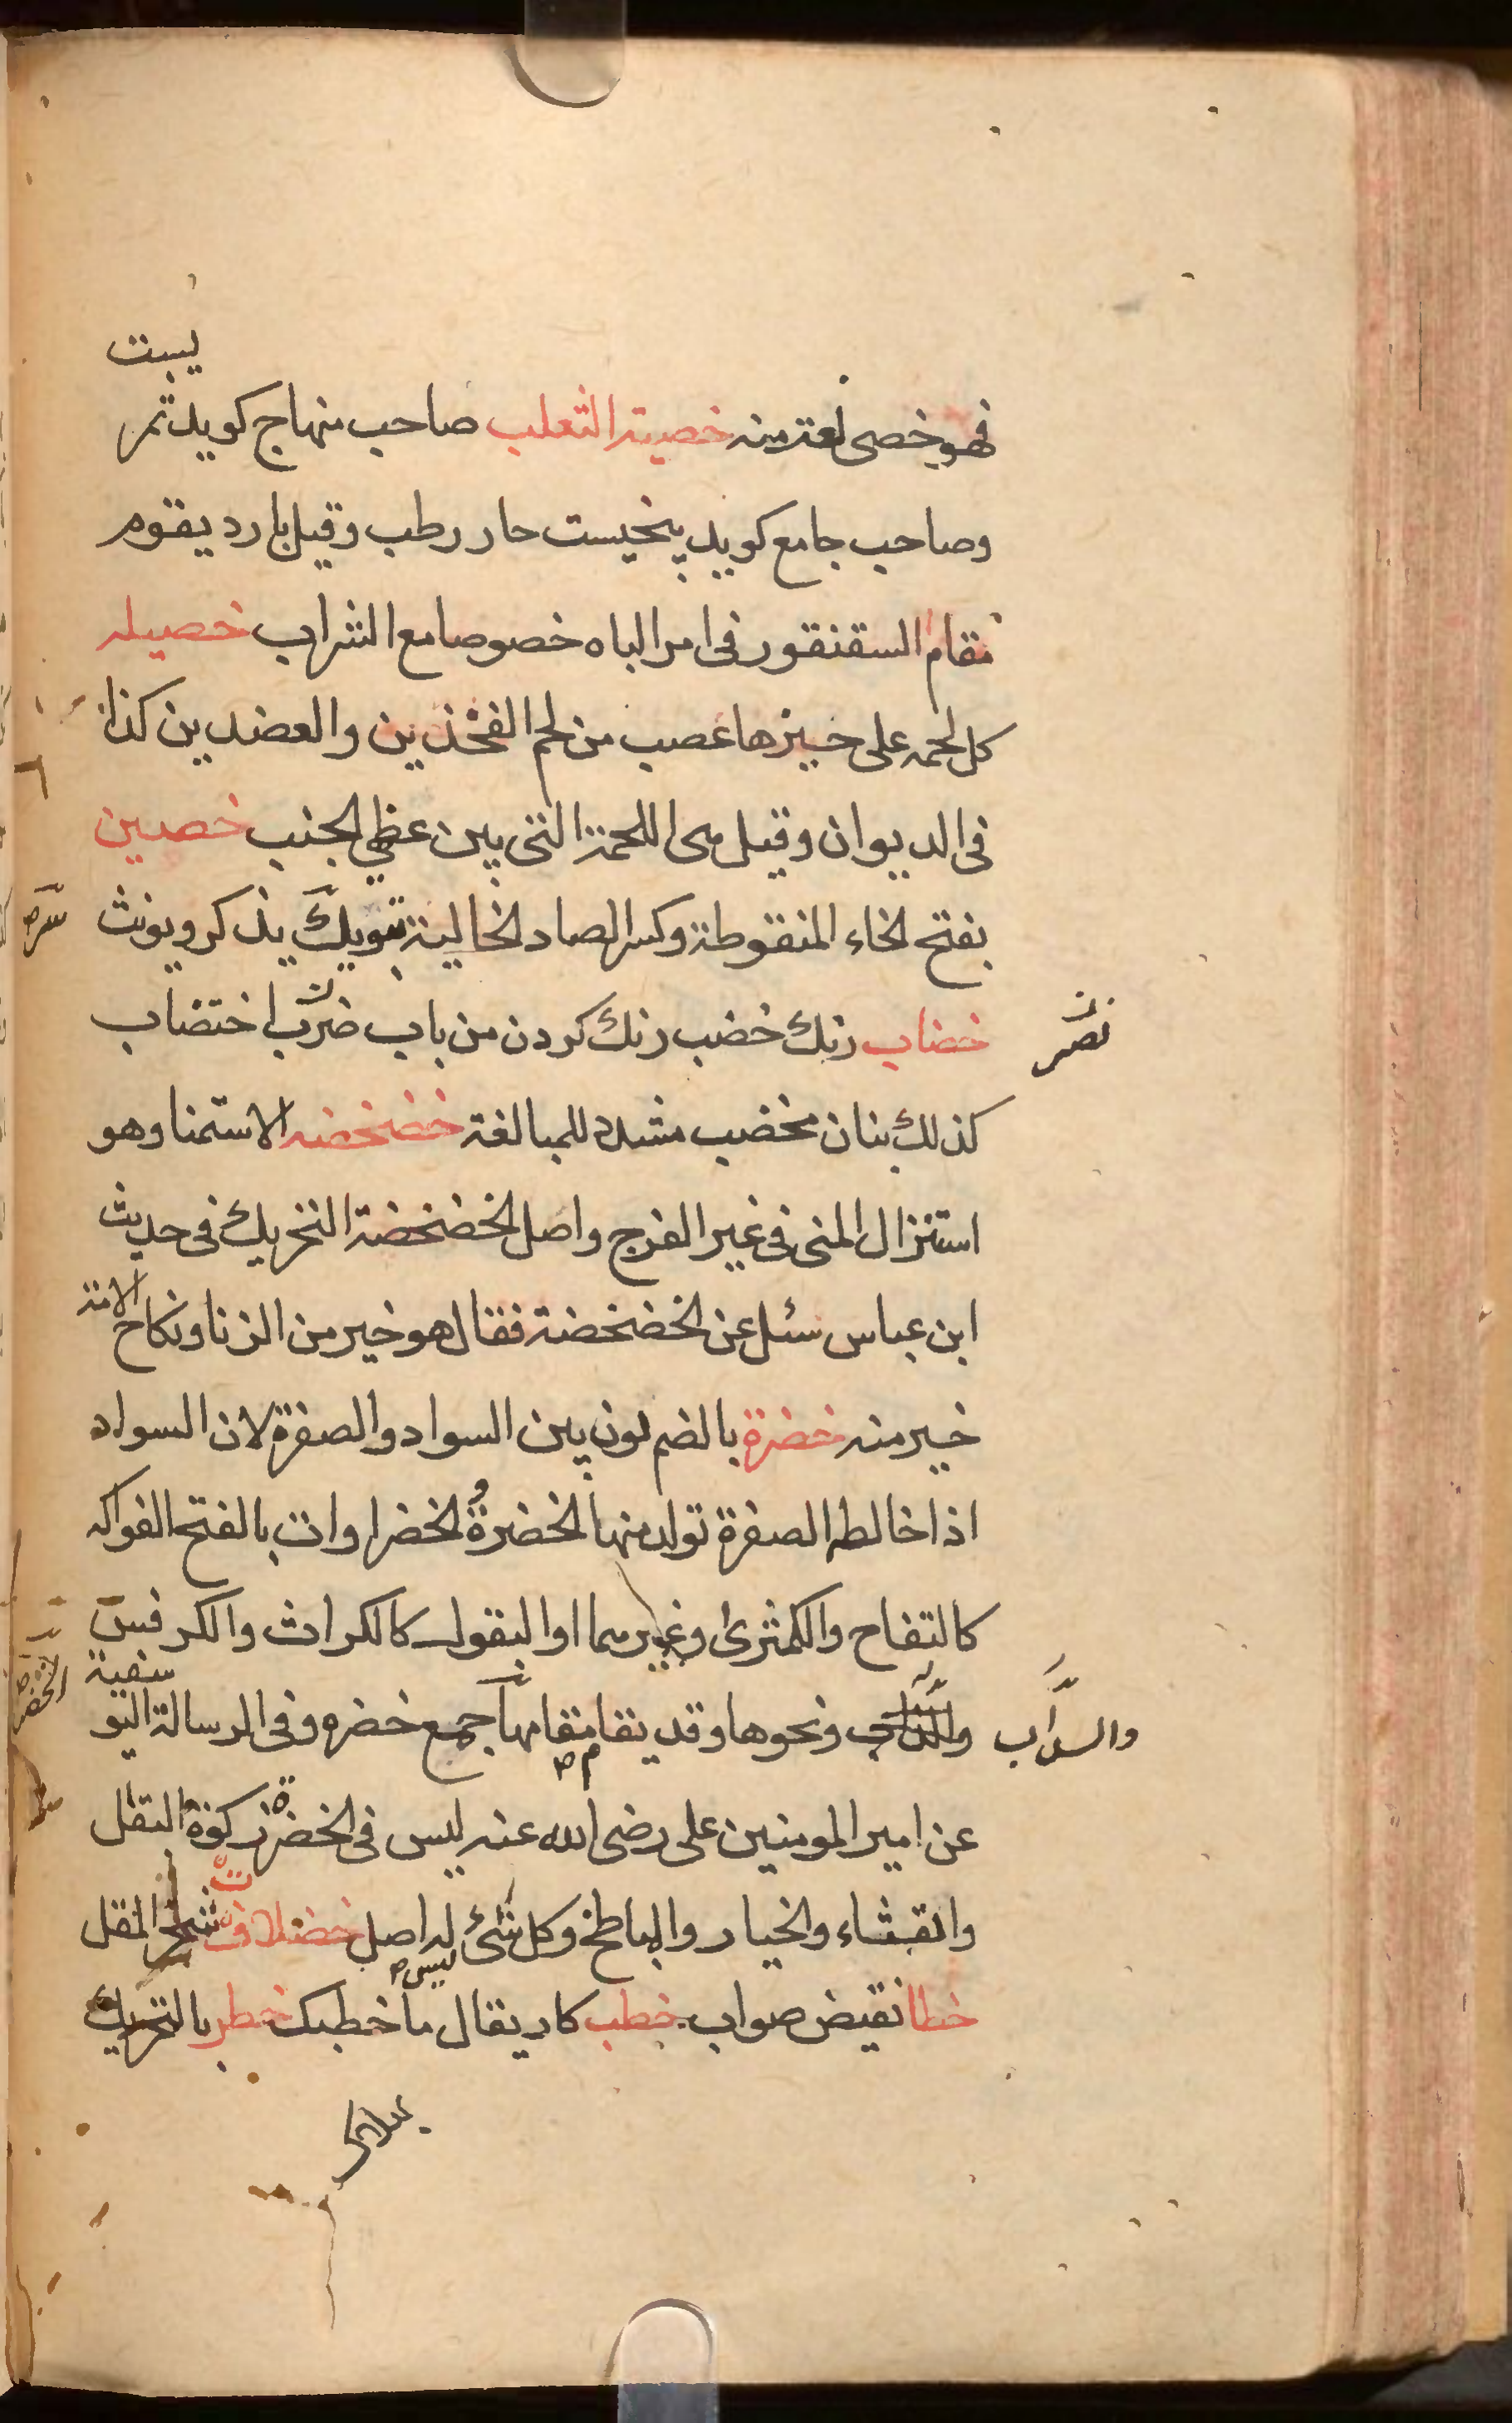 فهو خصى لغة منه خصية الثعلب صاحب منهاج كويد ثمر
يست
وصاحب جامع كويد بيخيست حار رطب وقيل بارد يقوم
مقام السقنقور فى امر الباه خصوصا مع الشراب خصيله
كل لحمه على حيزها عصب من لحم الفخذين والعضدين كذا
فى الديوان وقيل هى اللحمة التى بين عظمى الجنب خصين
بفتح الخاء المنقوطة وكسر الصاد الخالية تبويك يذكر ويونث
خضاب رنك خضب رنك كردن من باب ضرب اختضاب
نصر
كذلك بنان مخضب مشدد للمبالغة خضخضه الاستمنا وهو
استنزال المنى فى غير الفرج واصل الخضخضة التحريك فى حديث
ابن عباس سئل عن الخضخضة فقال هو خير من الزنا ونكاح الامة
خير منه خضرة بالضم لون بين السواد والصفرة لان السواد
اذا خالطه الصفرة تولد منها الخضرة الخضراوات بالفتح الفواكه
كالتفاح والكمثرى وغيرهما او البقول كالكراث والكرفس
والسداب ونحوها وقد يقام مقامها جمع خضره وفى الرسالة اليوسفية
والسداب
عن امير المومنين على رضى الله عنه ليس فى الخضرة زكوة البقل
والقثاء والخيار والباطخ وكل شئ ليس له اصل خضلاف شجر المقل
خطا نقيض صواب خطب كار يقال ما خطبك خطر بالتحريك